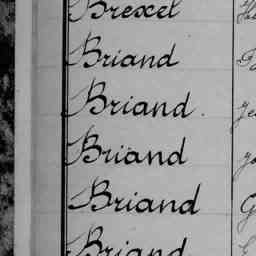 Brexel
Briand
Briand.
Briand
Briand
Briand